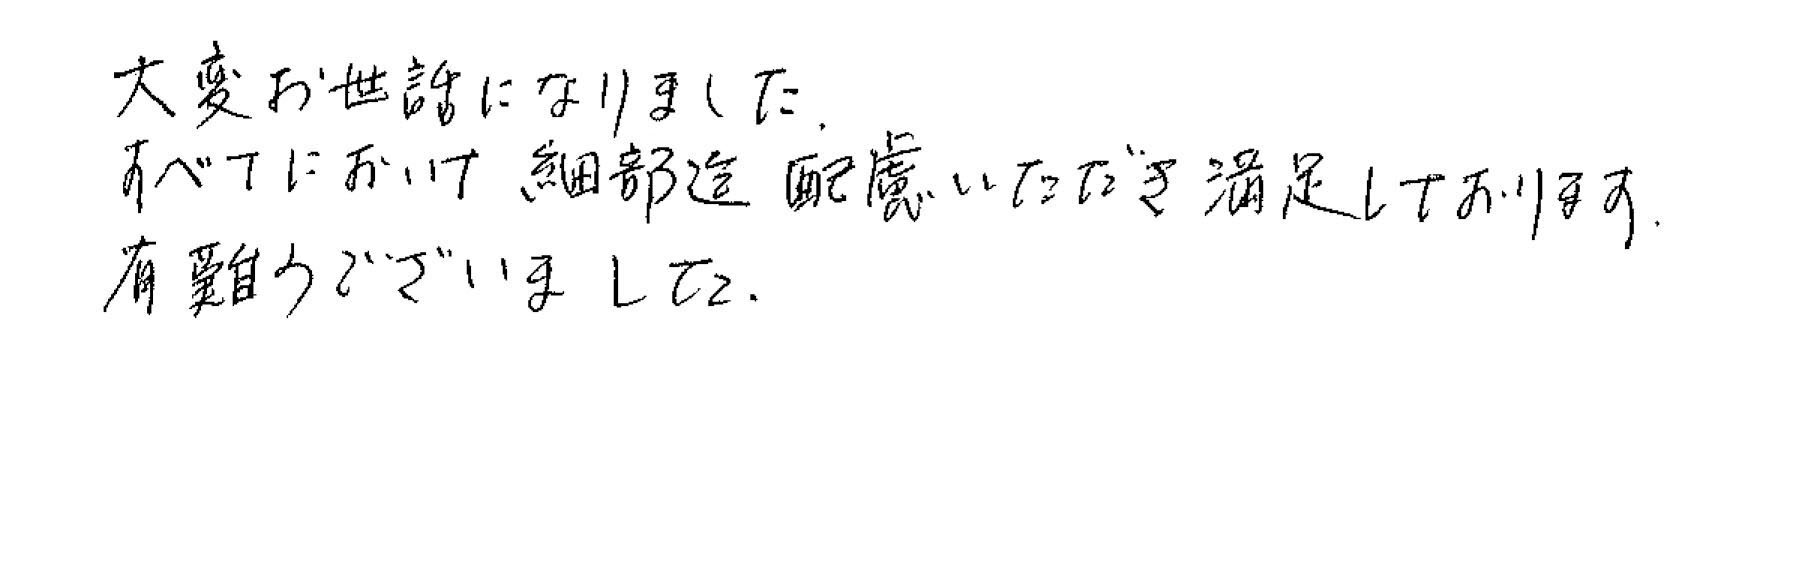 大変お世話になりました.
すべてにおいて 細部迄 配慮いただき満足しております.
有難うございました.